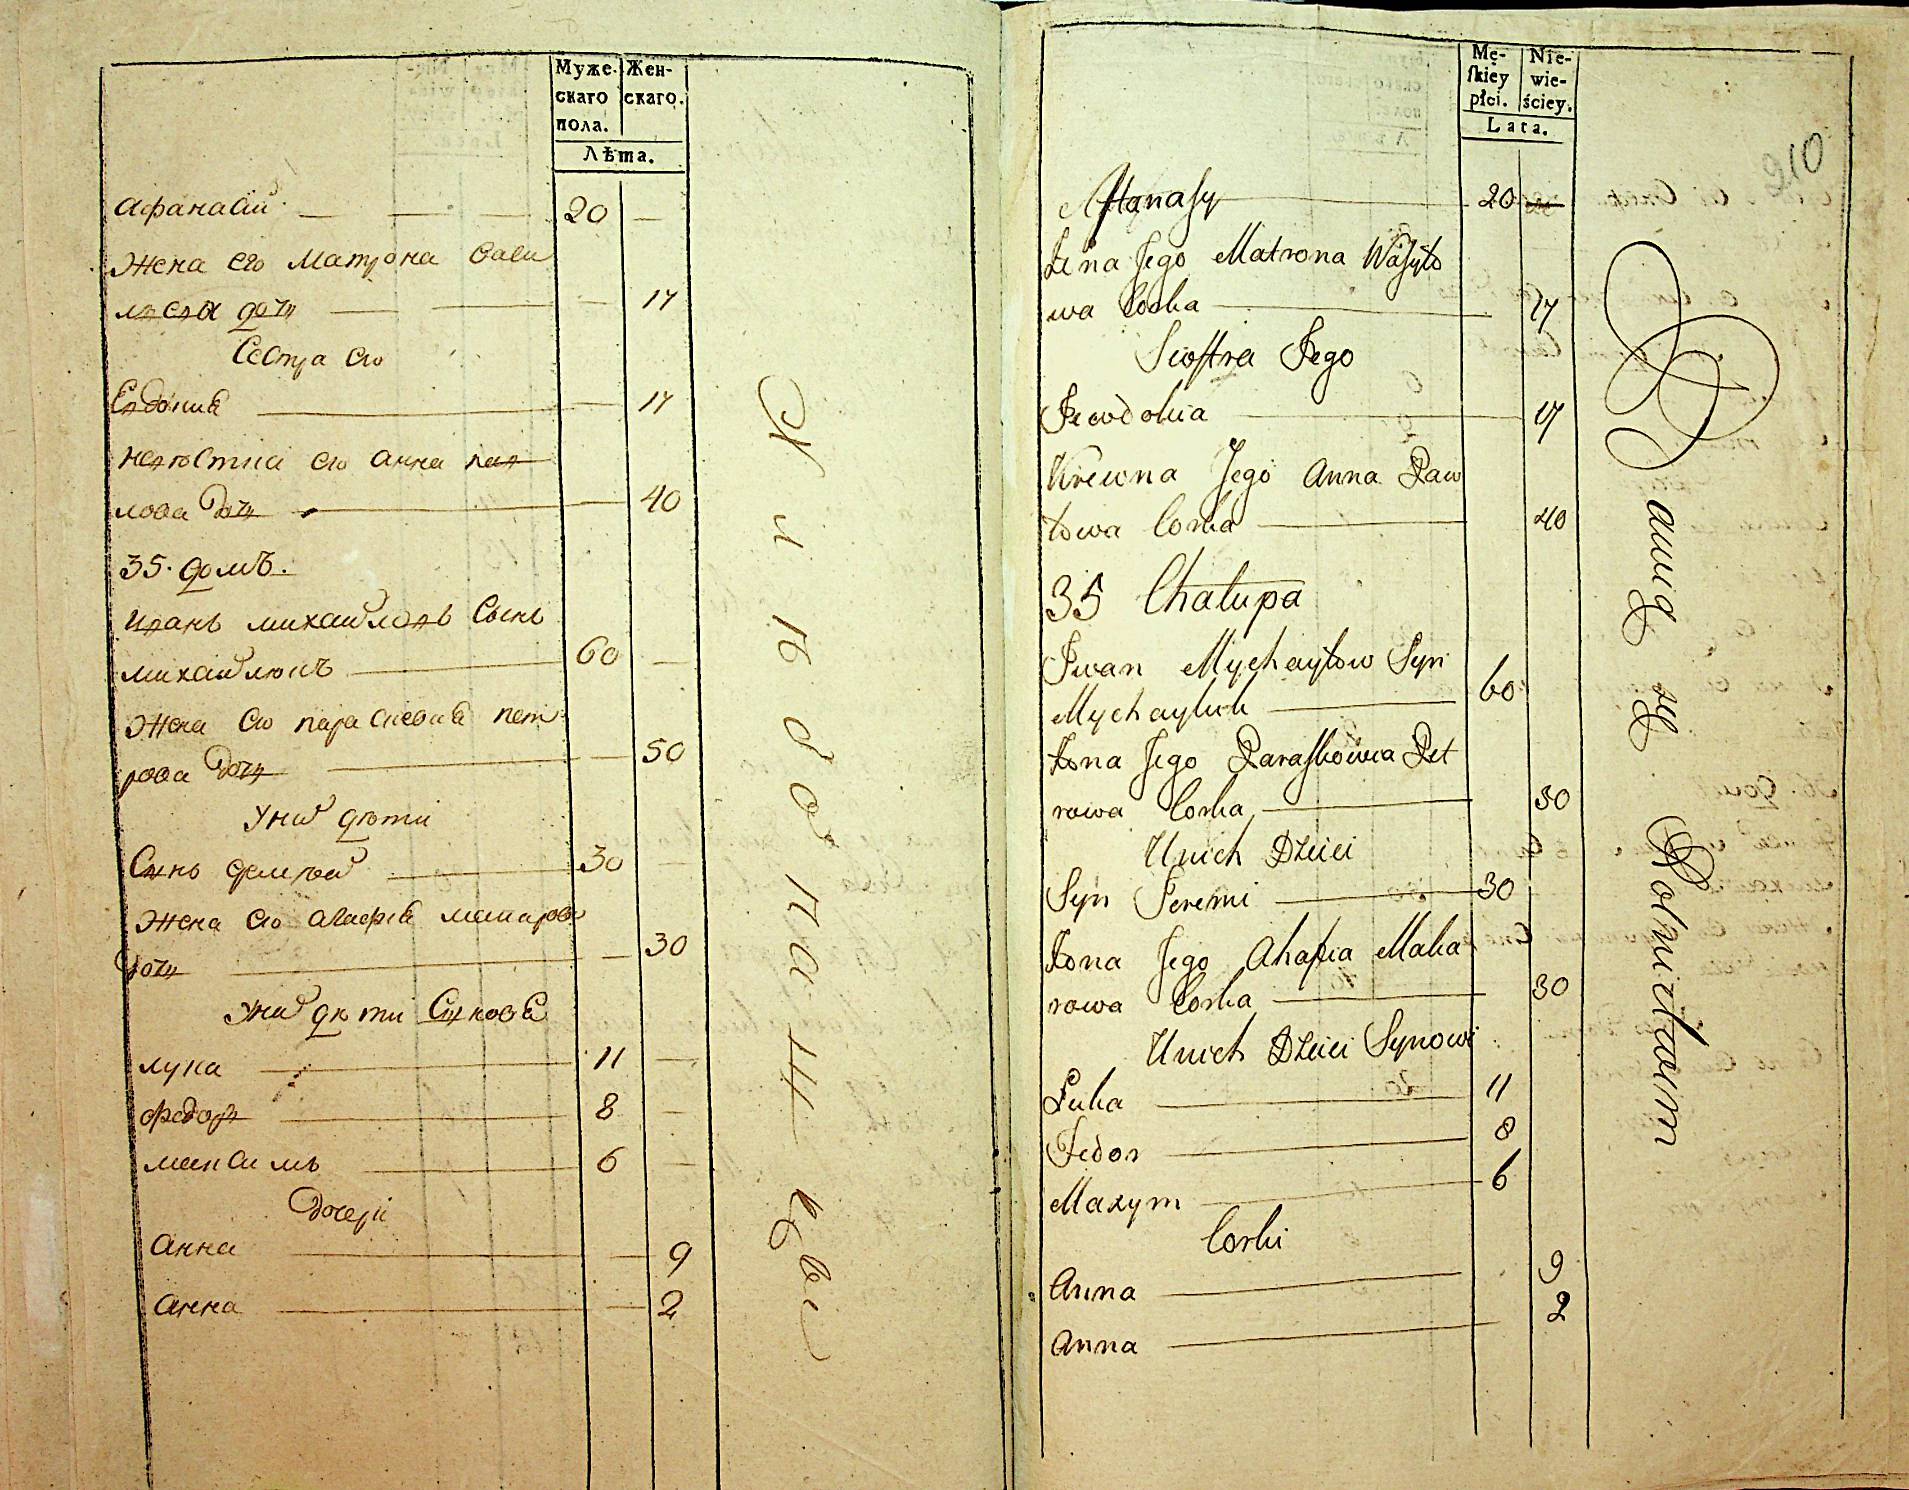 Муже-
скаго
пола.
Жен-
скаго.
Лѣта.
Афанасий 20
Жена его Матрона Васи
левы дочь 17
Сестра его
Евдокия 17
Анна
лова дочь 40
35. домъ.
Иванъ Михайловъ сынъ
Михайлюкъ 60
Жена его Параскевия Пет
рова дочь 50
У них дѣти
Сынъ 30
Жена его Агафия Макарова
дочь 30
У них дѣти сыновя
Лука 11
Федор 8
Максимъ 6
дочери
Анна 9
Анна 2
Mę-
skiey
płci.
Nie-
wie-
ściey.
Lata.
210
Atanasy 20
Żena Jego Matrona Wasyło
wa Corka 17
Siostra Jego
Jewdokia 17
Krewna Jego Anna Paw
łowa Corka 40
35 Chałupa
Iwan Mychayłow Syn
Mychayluk 60
Żona Jego Paraskowia Pet
rowa Corka 50
U nich Dzieci
Syn Jeremi 30
Żona Jego Ahafia Maka
rowa Corka 30
U nich Dzieci Synowi
Łuka 11
Fedor 8
Maxym 6
Corki
Anna 9
Anna 2